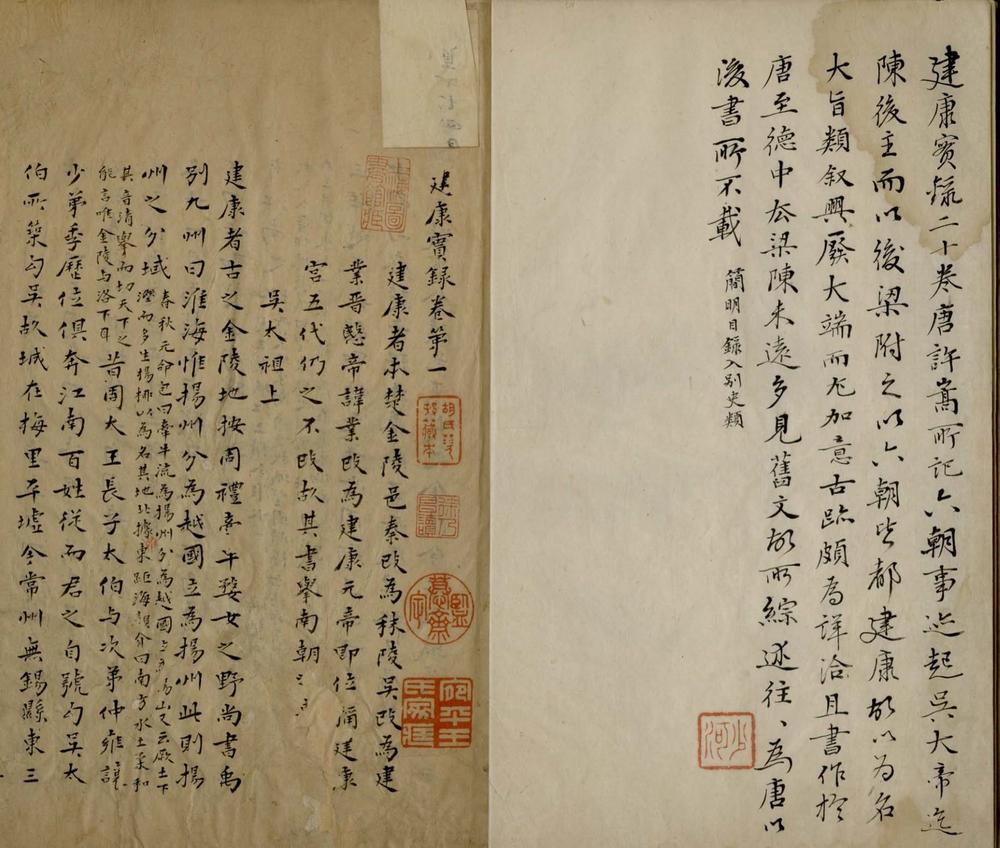 建康實錄二十卷唐許嵩所記六朝事迹起吳大帝迄
陳後主而以後梁附之以六朝皆都建康故以為名
大旨類叙興廢大端而尤加意古跡頗為詳洽且書作於
唐至德中去梁陳未遠多見舊文故所綜述往、為唐以
後書所不載
簡明目錄入別史類
少河
建康實錄卷第一
建康者本楚金陵邑秦改為秣陵吳改為建
業晉愍帝諱業改為建康元帝即位稱建康
宮五代仍之不改故其書舉南朝
吳太祖上
建康者古之金陵地按周禮牽牛婺女之野尚書禹
別九州曰淮海惟揚州分為越國立為揚州此則揚
州之分域
春秋元命包曰牽牛流為揚州分為越國立為揚山又云厥土下
濕而多生楊柳以為名其地北據東距海 介曰南方水土柔和
其音清舉而切天下之
能言唯金陵与洛下耳
昔周大王長子太伯与次弟仲雍讓
少弟季歷位俱奔江南百姓從而君之自號勾吳太
伯所築勾吳故城在梅里平墟今常州無錫縣東三